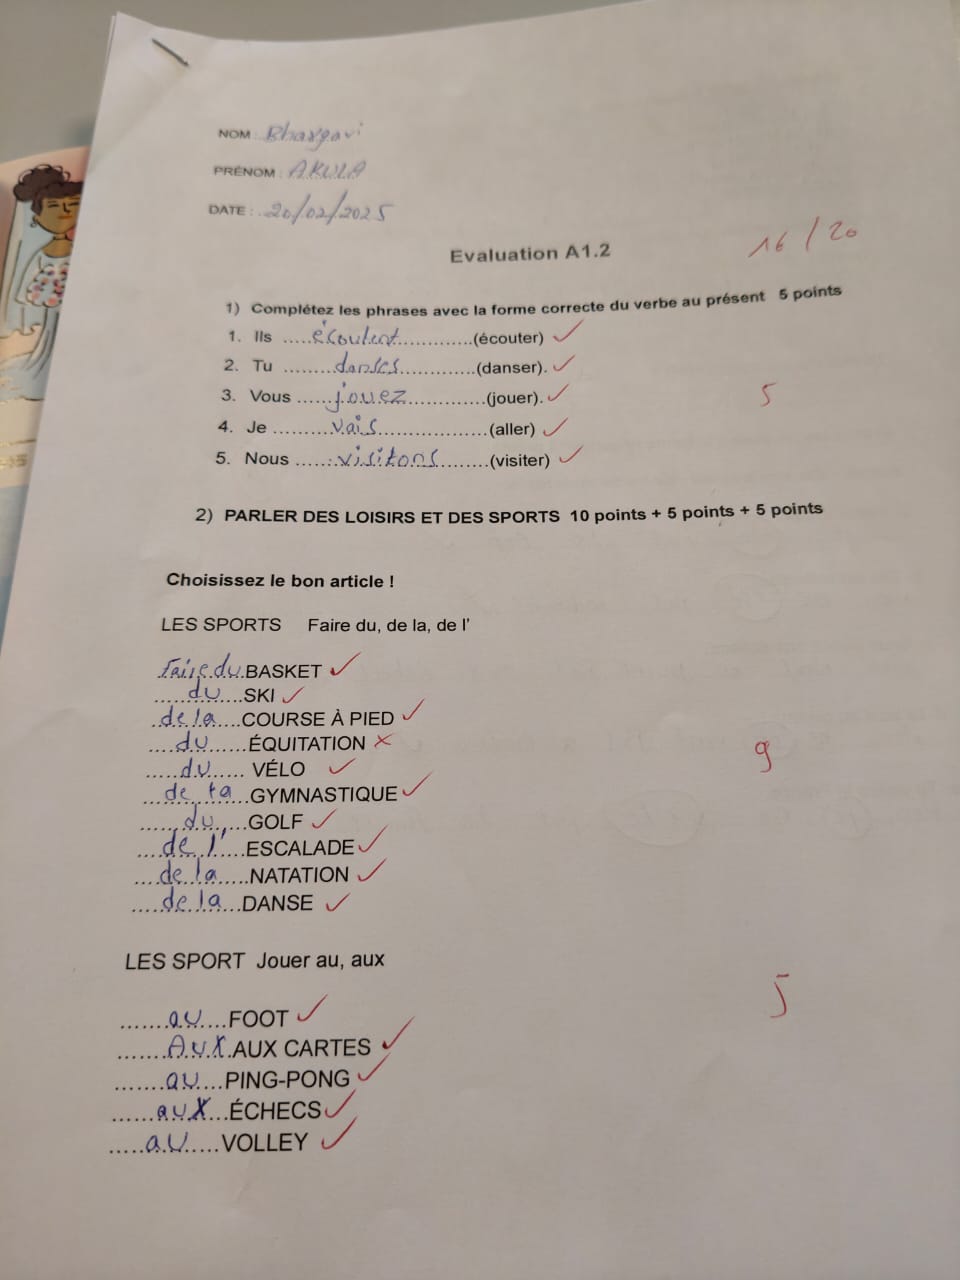 NOM : Bhargavi
PRÉNOM : AKULA
DATE : 20/02/2025
Evaluation A1.2
16/20
1) Complétez les phrases avec la forme correcte du verbe au présent 5 points
1. Ils .....écoutent............(écouter)
2. Tu ........danses............(danser).
3. Vous ......jouez.............(jouer).
5
4. Je .........vais.................(aller)
5. Nous ......visitons........(visiter)
2) PARLER DES LOISIRS ET DES SPORTS 10 points + 5 points + 5 points
Choisissez le bon article !
LES SPORTS Faire du, de la, de l'
Faire du BASKET
.....du....SKI
de la....COURSE À PIED
....du......ÉQUITATION
9
.....du..... VÉLO
...de la...GYMNASTIQUE
......du....GOLF
....de l'....ESCALADE
....de la.....NATATION
.....de la...DANSE
LES SPORT Jouer au, aux
5
.......au....FOOT
.......Aux.AUX CARTES
.......au....PING-PONG
......aux...ÉCHECS
.....au.....VOLLEY